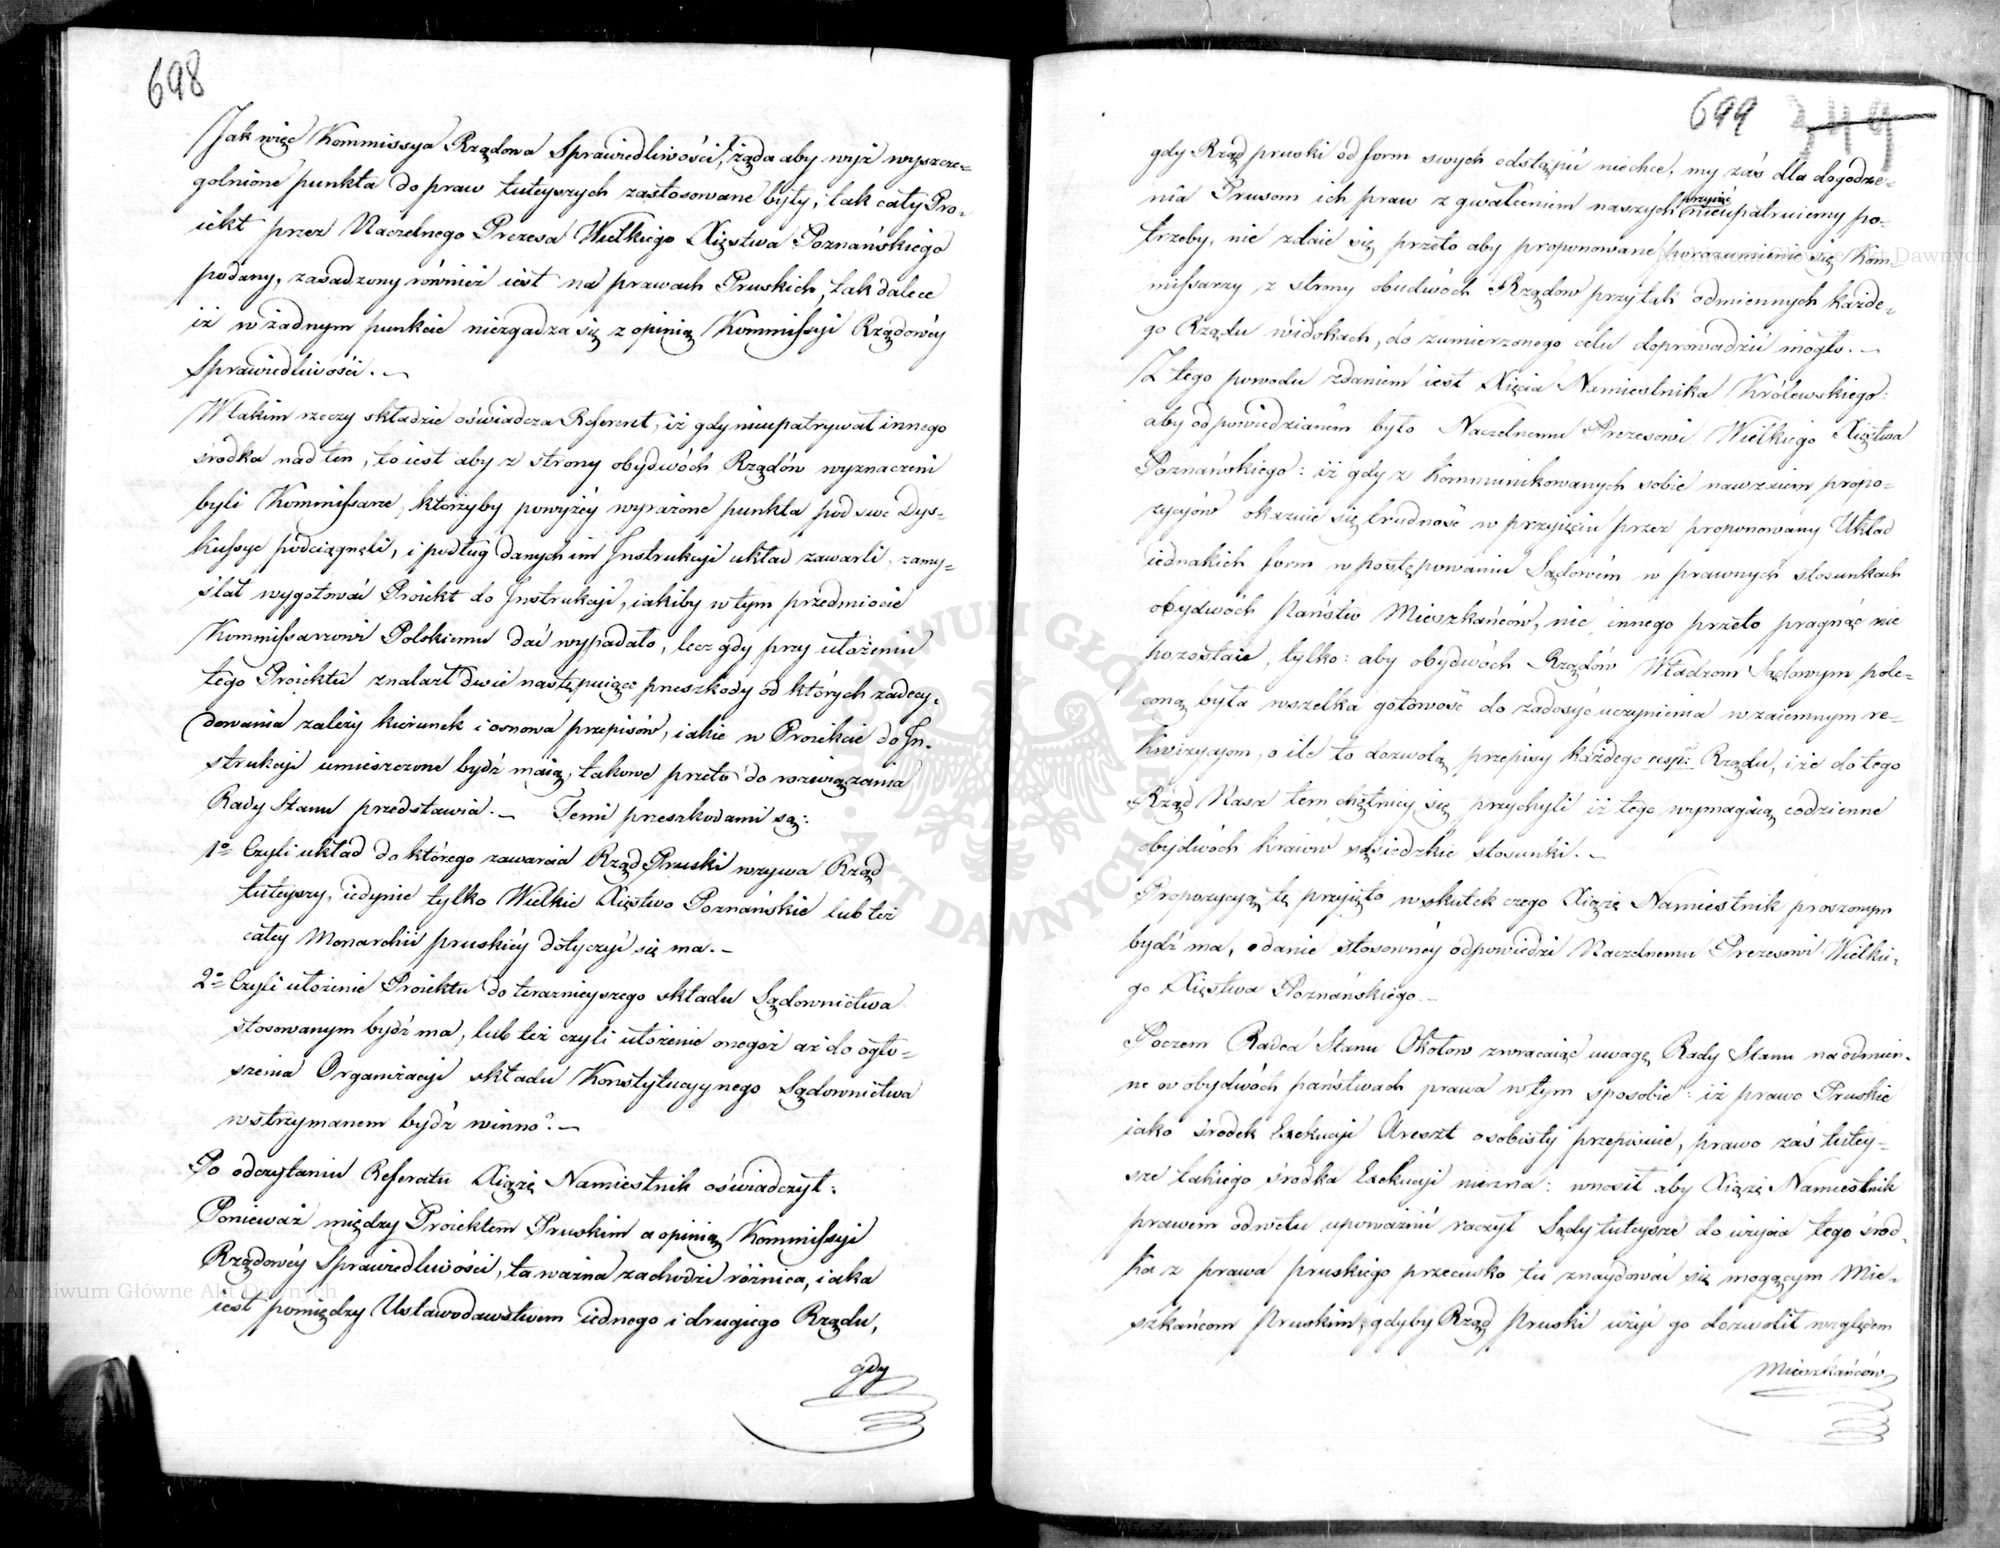 698
Jak więc Kommissya Rządowa Sprawiedliwości, żąda aby wyż wyszcze-
golnione punkta do praw tuteyszych zastosowane były, tak cały Pro-
iekt przez Naczelnego Prezesa Wielkiego Xięstwa Poznańskiego
podany, zasadzony również iest na prawach Pruskich, tak dalece
iż w żadnym punkcie niezgadza się z opinią Kommissyi Rządowéy
Sprawiedliwości. —
W takim rzeczy składzie oświadcza Referent, iż gdy nieupatrywał innego
środka nad ten, to iest aby z strony obydwóch Rządów wyznaczeni
byli Kommissarze, którzyby powyżéy wyrażone punkta pod swe Dys-
kussye podciągnęli, i podług danych im Instrukcyi układ zawarli, zamy-
ślał wygotować Proiekt do Instrukcyi, iakiby w tym przedmiocie
Kommissarzowi Polskiemu dać wypadało, lecz gdy przy ułożeniu
tego Proiektu znalazł dwie następuiące przeszkody od których zadecy-
dowania zależy kierunek i osnowa przepisów, iakie w Proiekcie do In-
strukcyi umieszczone bydź maią, takowe przeto do rozwiązania
Rady Stanu przedstawia. — Temi przeszkodami są:
1o Czyli układ do którego zawarcia Rząd Pruski wzywa Rząd
tuteyszy, iedynie tylko Wielkie Xięstwo Poznańskie lub też
całey Monarchii pruskiéy dotyczyć się ma. —
2o Czyli ułożenie Proiektu do teraznieyszego składu Sądownictwa
stosowanym bydź ma, lub też czyli ułożenie onegoż aż do ogło-
szenia Organizacyi składu Konstytucyynego Sądownictwa
wstrzymanem bydź winno? —
Po odczytaniu Referatu Xiążę Namiestnik oświadczył:
Ponieważ między Proiektem Pruskim a opinią Kommissyi
Rządowéy Sprawiedliwości, ta ważna zachodzi różnica, iaka
iest pomiędzy Ustawodawstwem iednego i drugiego Rządu,
gdy
699 349
gdy Rząd pruski od form swych odstąpić niechce, my zaś dla dogodze-
nia Prusom ich praw z gwałceniem naszych przyiąć nieupatruiemy po-
trzeby, nie zdaie się przeto aby proponowane porozumienie się Kom-
missarzy z strony obudwóch Rządow przy tak odmiennych każde-
go Rządu widokach, do zamierzonego celu doprowadzić mogło. —
Z tego powodu zdaniem iest Xięcia Namiestnika Królewskiego:
aby odpowiedzianem było Naczelnemu Prezesowi Wielkiego Xięstwa
Poznańskiego: iż gdy z kommunikowanych sobie nawzaiem propo-
zycyów okazuie się trudność w przyięciu przez proponowany Układ
iednakich form w postępowaniu Sądowém w prawnych stosunkach
obydwóch Państw Mieszkańców, nic innego przeto pragnąć nie
pozostaie, tylko: aby obydwóch Rządów Władzom Sądowym pole-
coną była wszelka gotowość do zadosyć uczynienia wzaiemnym re-
kwizycyom, o ile to dozwolą przepisy każdego resp: Rządu, i że do tego
Rząd Nasz tem chętniey się przychyli iż tego wymagaią codzienne
obydwóch kraiów sąsiedzkie stosunki. —
Propozycyą tę przyięto w skutek czego Xiążę Namiestnik proszonym
bydź ma, o danie stosownéy odpowiedzi Naczelnemu Prezesowi Wielkie-
go Xięstwa Poznańskiego. —
Poczem Radca Stanu Okołow zwracaiąc uwagę Rady Stanu na odmien-
ne w obydwóch państwach prawa w tym sposobie: iż prawo Pruskie
iako środek Exekucyi Areszt osobisty przepisuie, prawo zaś tutey-
sze takiego środka Exekucyi niezna: wnosił aby Xiążę Namiestnik
prawem odwetu upoważnić raczył Sądy tuteysze do użycia tego środ-
ka z prawa pruskiego przeciwko tu znaydować się mogącym Mie-
szkańcom Pruskim, gdyby Rząd Pruski użyć go dozwolił względem
Mieszkańców
Archiwum Główne Akt Dawnych
ARCHIWUM GŁÓWNE AKT DAWNYCH
Archiwum Główne Akt Dawnych